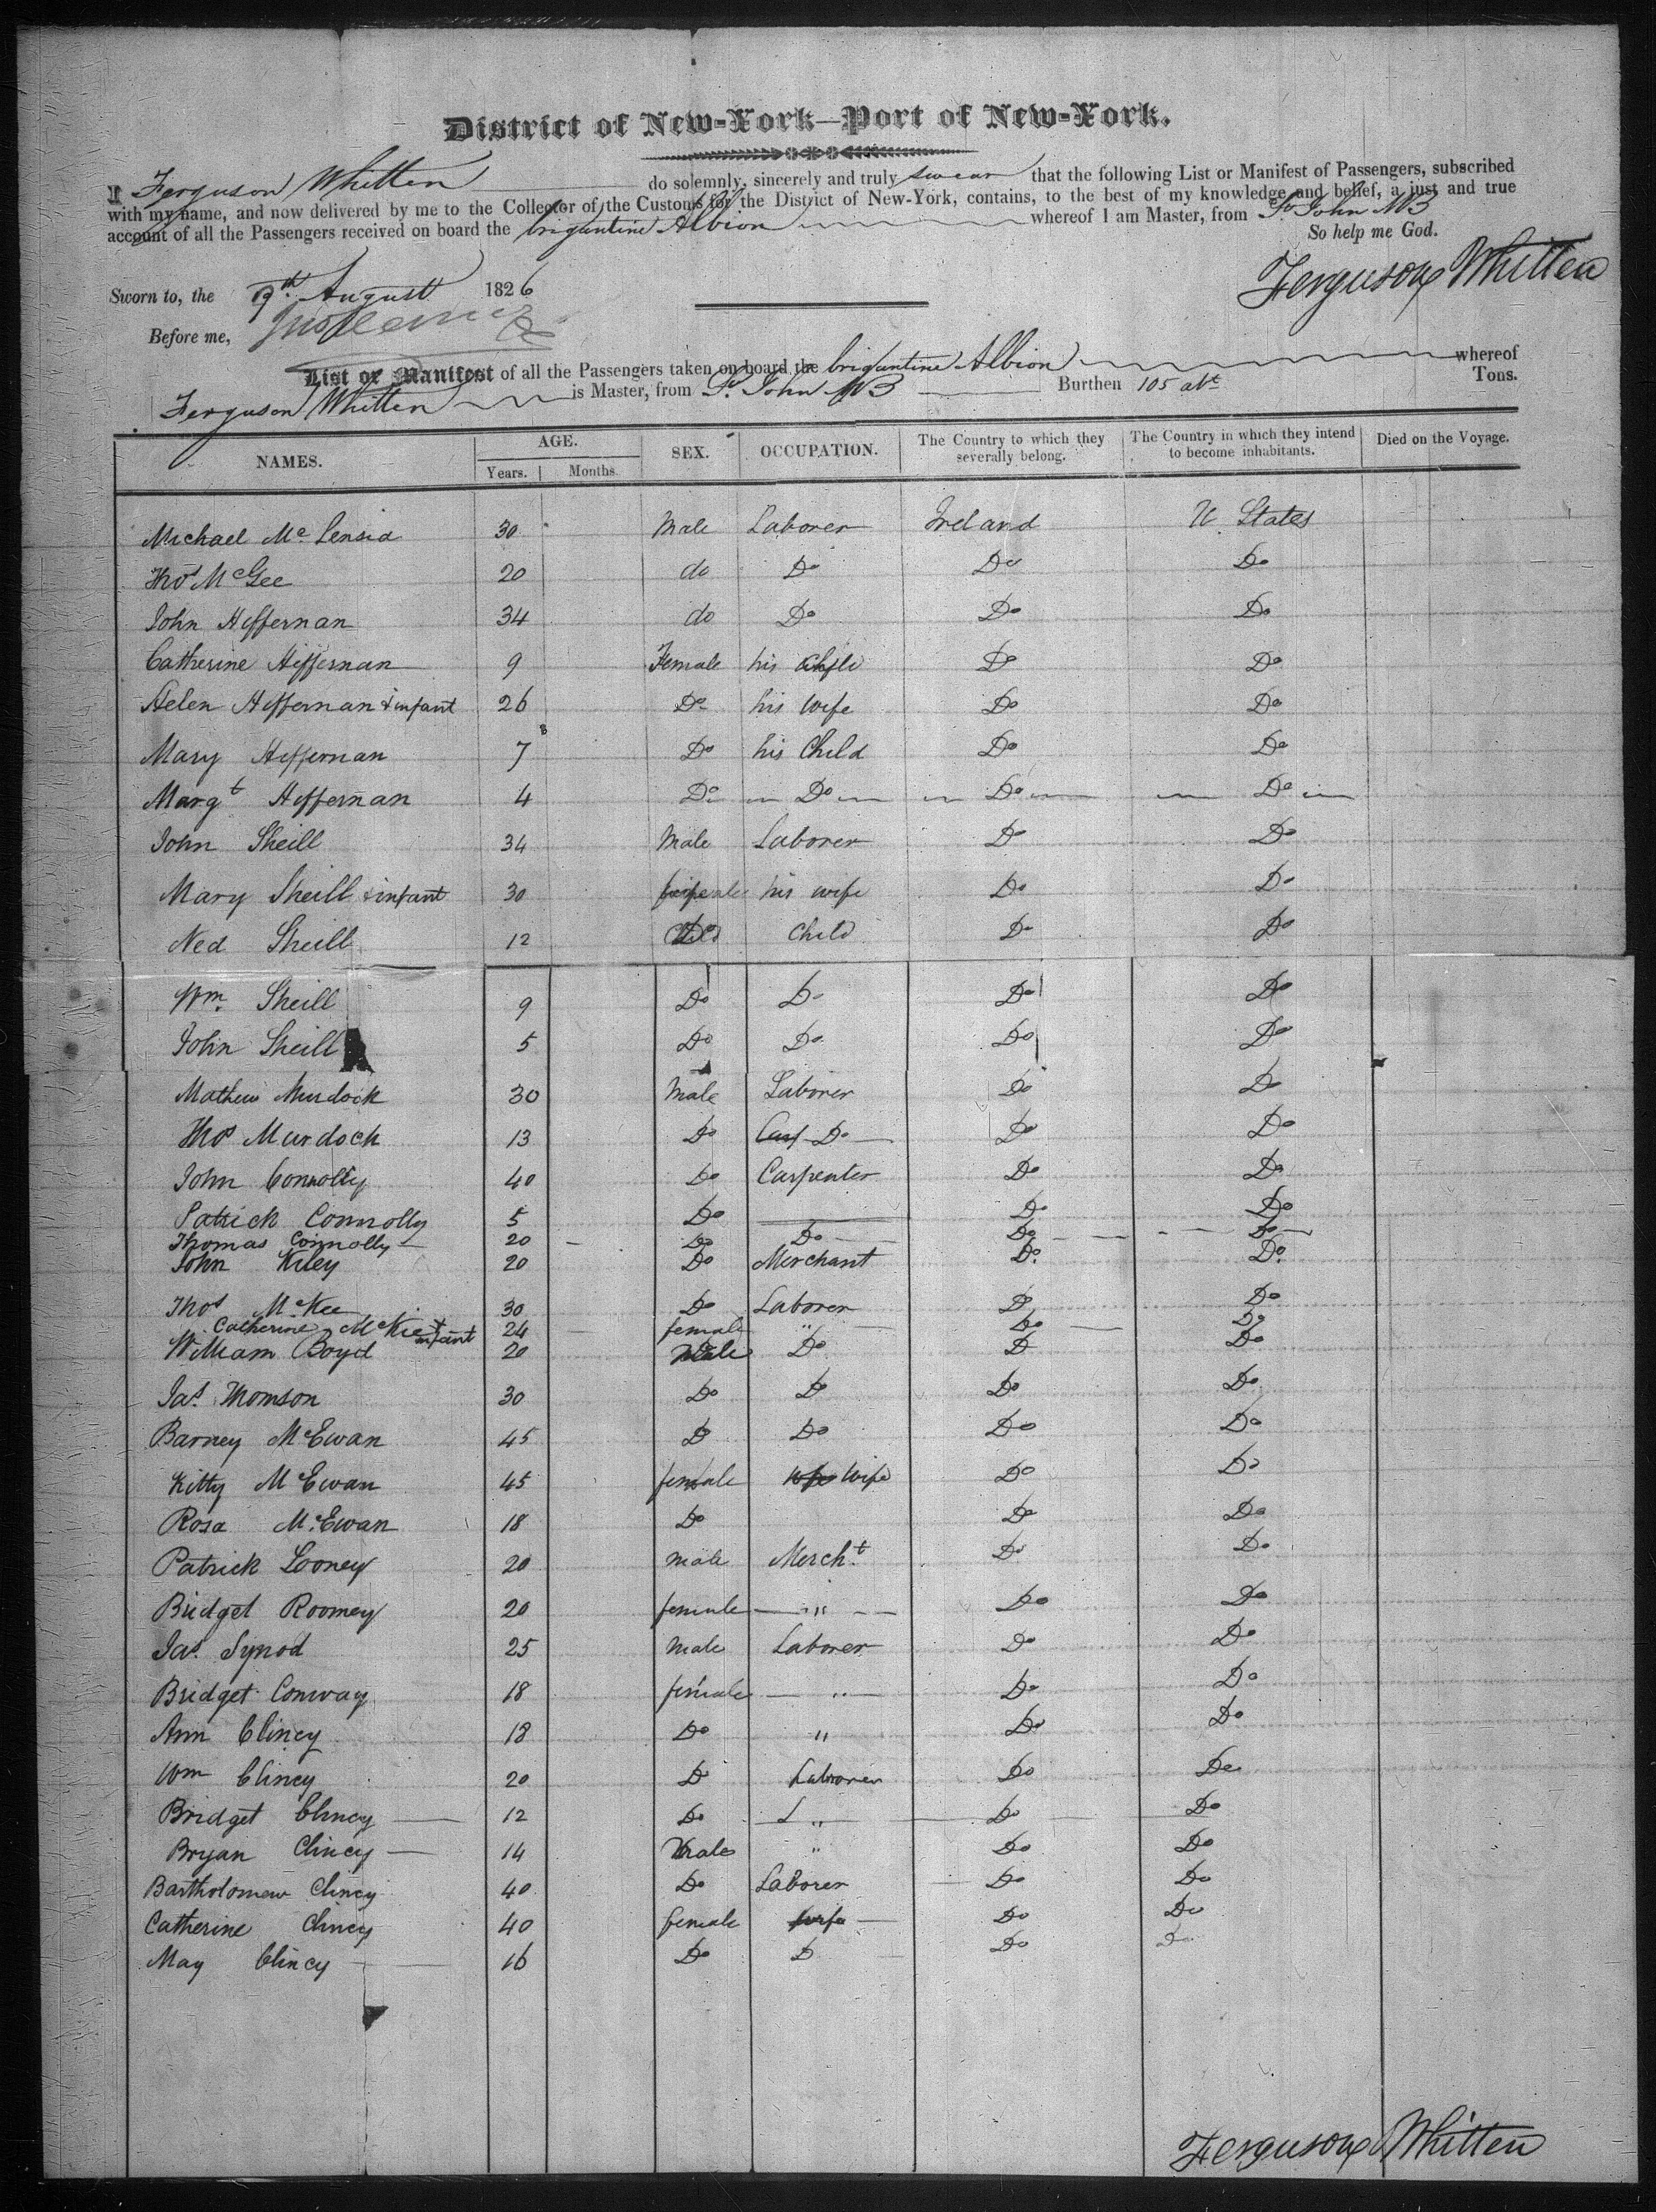 District of New-York—Port of New-York.
I Ferguson Whitten do solemnly, sincerely and truly swear that the following List or Manifest of Passengers, subscribed
with my name, and now delivered by me to the Collector of the Customs for the District of New-York, contains, to the best of my knowledge and belief, a just and true
account of all the Passengers received on board the brigantine Albion whereof I am Master, from St John NB
So help me God.
Sworn to, the 9th August 1826 Ferguson Whitten
Before me,
List or Manifest of all the Passengers taken on board the brigantine Albion whereof
Ferguson Whitten is Master, from St. John NB Burthen 105 abt Tons.
NAMES. AGE. Years. Months. SEX. OCCUPATION. The Country to which they severally belong. The Country in which they intend to become inhabitants. Died on the Voyage.
Michael Mc 30 Male Laborer Ireland U States
Thos McGee 20 do Do Do Do
John Heffernan 34 do Do Do Do
Catherine Heffernan 9 Female his Do Do
Helen Heffernan & infant 26 Do his Wife Do Do
Mary Heffernan 7 Do his Child Do Do
Margt Heffernan 4 Do Do Do Do
John Sheill 34 Male Laborer Do Do
Mary Sheill & infant 30 female his wife Do Do
Ned Sheill 12 Do Child Do Do
Wm. Sheill 9 Do Do Do Do
John Sheill 5 Do Do Do Do
Mathew Murdock 30 Male Laborer Do Do
Thos Murdock 13 Do Do Do Do
John Connolly 40 Do Carpenter Do Do
Patrick Connolly 5 Do Do Do
Thomas Connolly 20 Do Do Do Do
John Kiley 20 Do Merchant Do. Do.
Thos McKee 30 Do Laborer Do Do
Catherine McKie & infant 24 female " Do Do
William Boyd 20 Male Do Do Do
Jas. Thomson 30 Do Do Do Do
Barney McEwan 45 Do Do Do Do
Kitty McEwan 45 female Wife Do Do
Rosa McEwan 18 Do Do Do
Patrick Looney 20 male Mercht Do Do
Bridget Roomey 20 female " Do Do
Jas. Synod 25 Male Laborer Do Do
Bridget Conway 18 female " Do Do
Ann Clincy 18 Do " Do Do
Wm Clincy 20 Do Laborer Do Do
Bridget Clincy 12 Do " Do Do
Bryan Clincy 14 Male " Do Do
Bartholomew Clincy 40 Do Laborer Do Do
Catherine Clincy 40 female wife Do Do
May Clincy 16 Do D Do Do
Ferguson Whitten